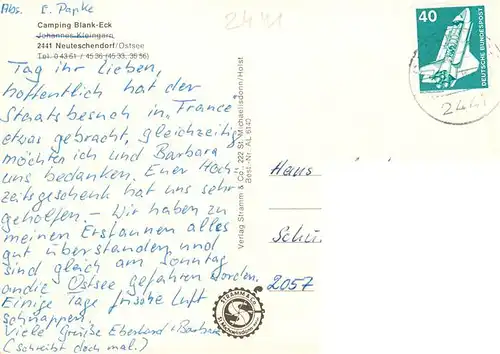 Abs. E. Papke
2441
Camping Blank-Eck
Johannes Kleingarn
2441 Neuteschendorf/Ostsee
Tel. 0 43 61 / 45 36 (45 33, 36 56)
Tag ihr Lieben,
hoffentlich hat der
Staatsbesuch in „France"
etwas gebracht, gleichzeitig
möchten ich und Barbara
uns bedanken. Euer Hoch-
zeitsgeschenk hat uns sehr
geholfen. – Wir haben zu
meinen Erstaunen alles
gut überstanden und
sind gleich am Sonntag
an die Ostsee gefahren worden.
Einige Tage frische Luft
schnappen.
Viele Grüße Eberhard + Barbara
(Schreibt doch mal.)
Verlag Stramm & Co., 222 St. Michaelisdonn/Holst
Best.-Nr. AL 6140
40
DEUTSCHE BUNDESPOST
2441
Hans
Schu
2057
STRAMM & CO.
St. Michaelisdonn